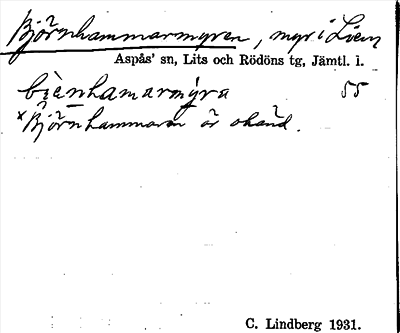 Björnhammarmyren, myr i Lien
Aspås' sn, Lits och Rödöns tg, Jämtl. l.
bienhamarmýra 55
*Björnhammaren är okänd.
C. Lindberg 1931.